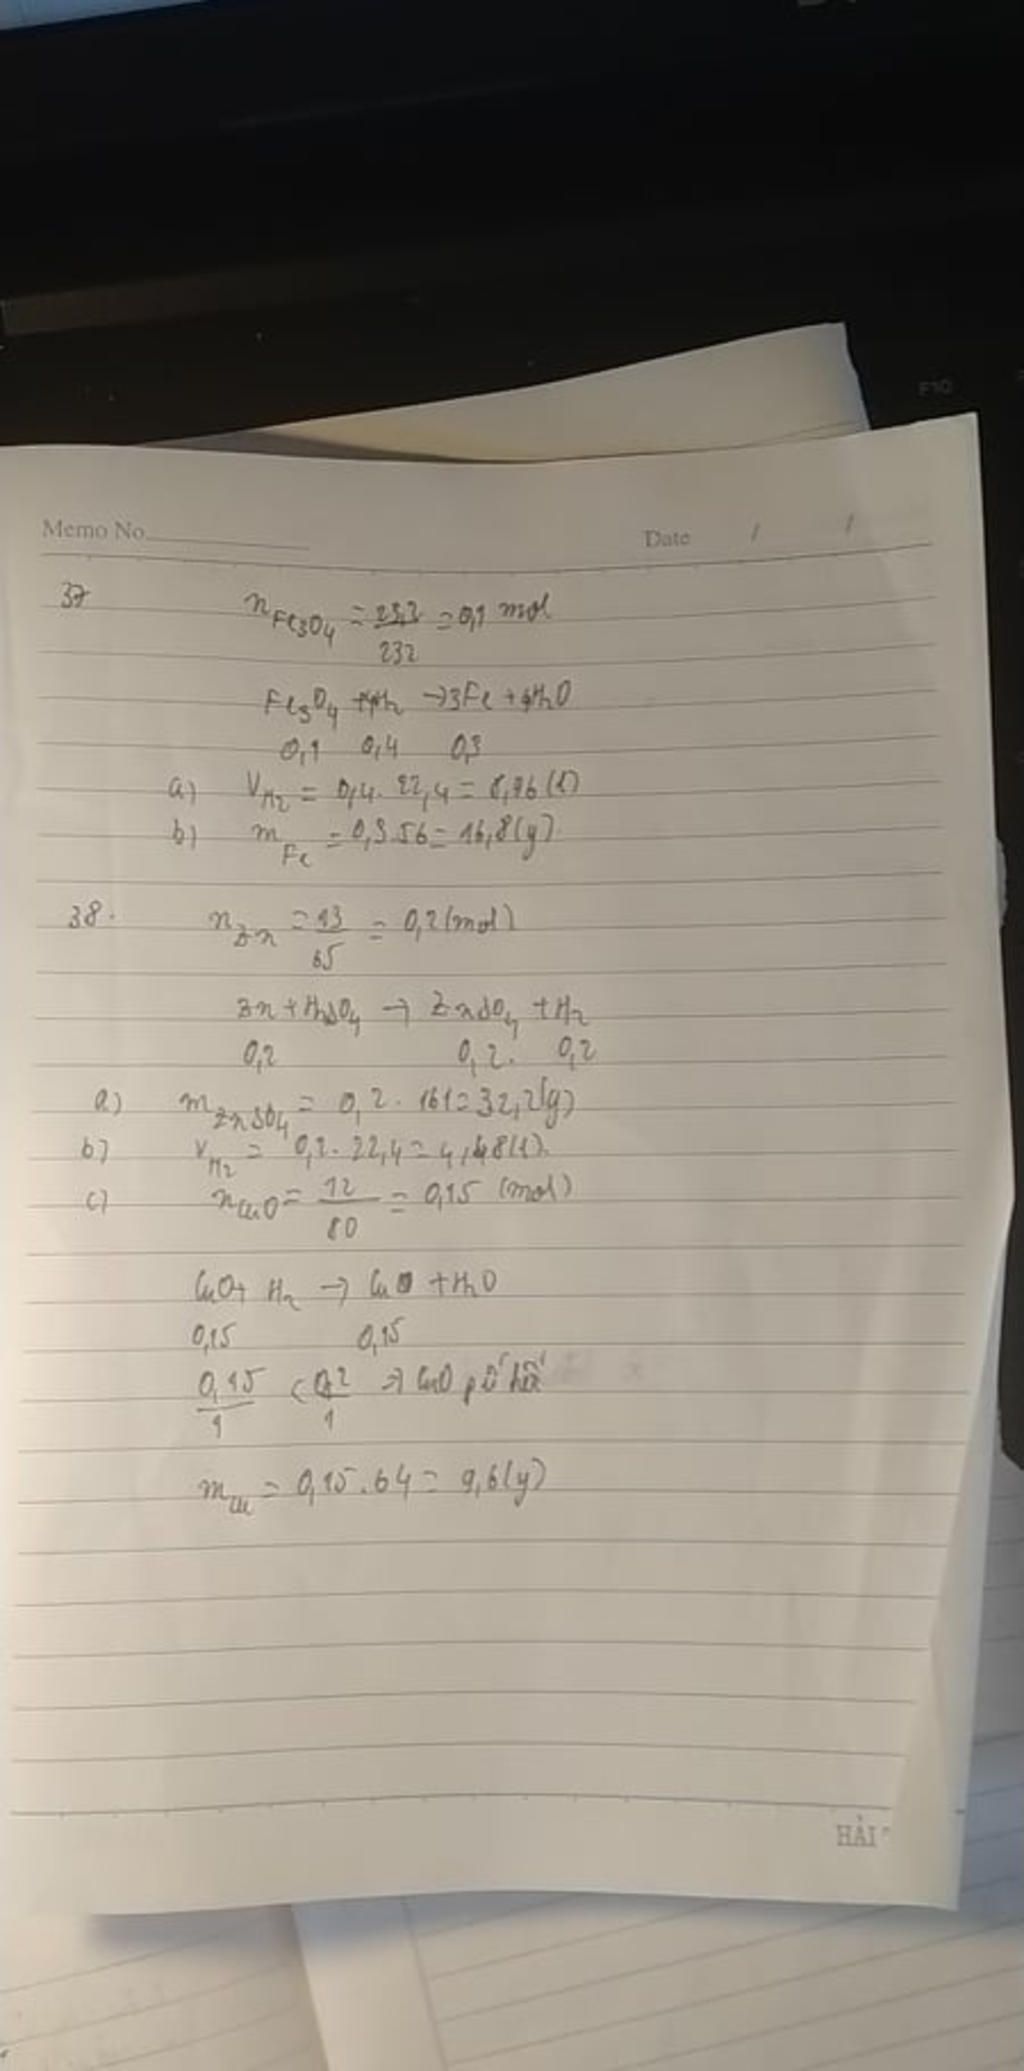 F10
Memo No. Date / /
37 nFe3O4 = 23,2/232 = 0,1 mol
Fe3O4 + 4H2 → 3Fe + 4H2O
0,1 0,4 0,3
a) VH2 = 0,4. 22,4 = 8,96 (l)
b) mFe = 0,3.56 = 16,8 (g)
38. nZn = 13/65 = 0,2 (mol)
Zn + H2SO4 → ZnSO4 + H2
0,2 0,2. 0,2
a) mZnSO4 = 0,2 . 161 = 32,2 (g)
b) VH2 = 0,2. 22,4 = 4,48 (l).
c) nCuO = 12/80 = 0,15 (mol)
CuO + H2 → Cu + H2O
0,15 0,15
0,15/1 < 0,2/1 → CuO pứ hết
mCu = 0,15 . 64 = 9,6 (g)
HẢI